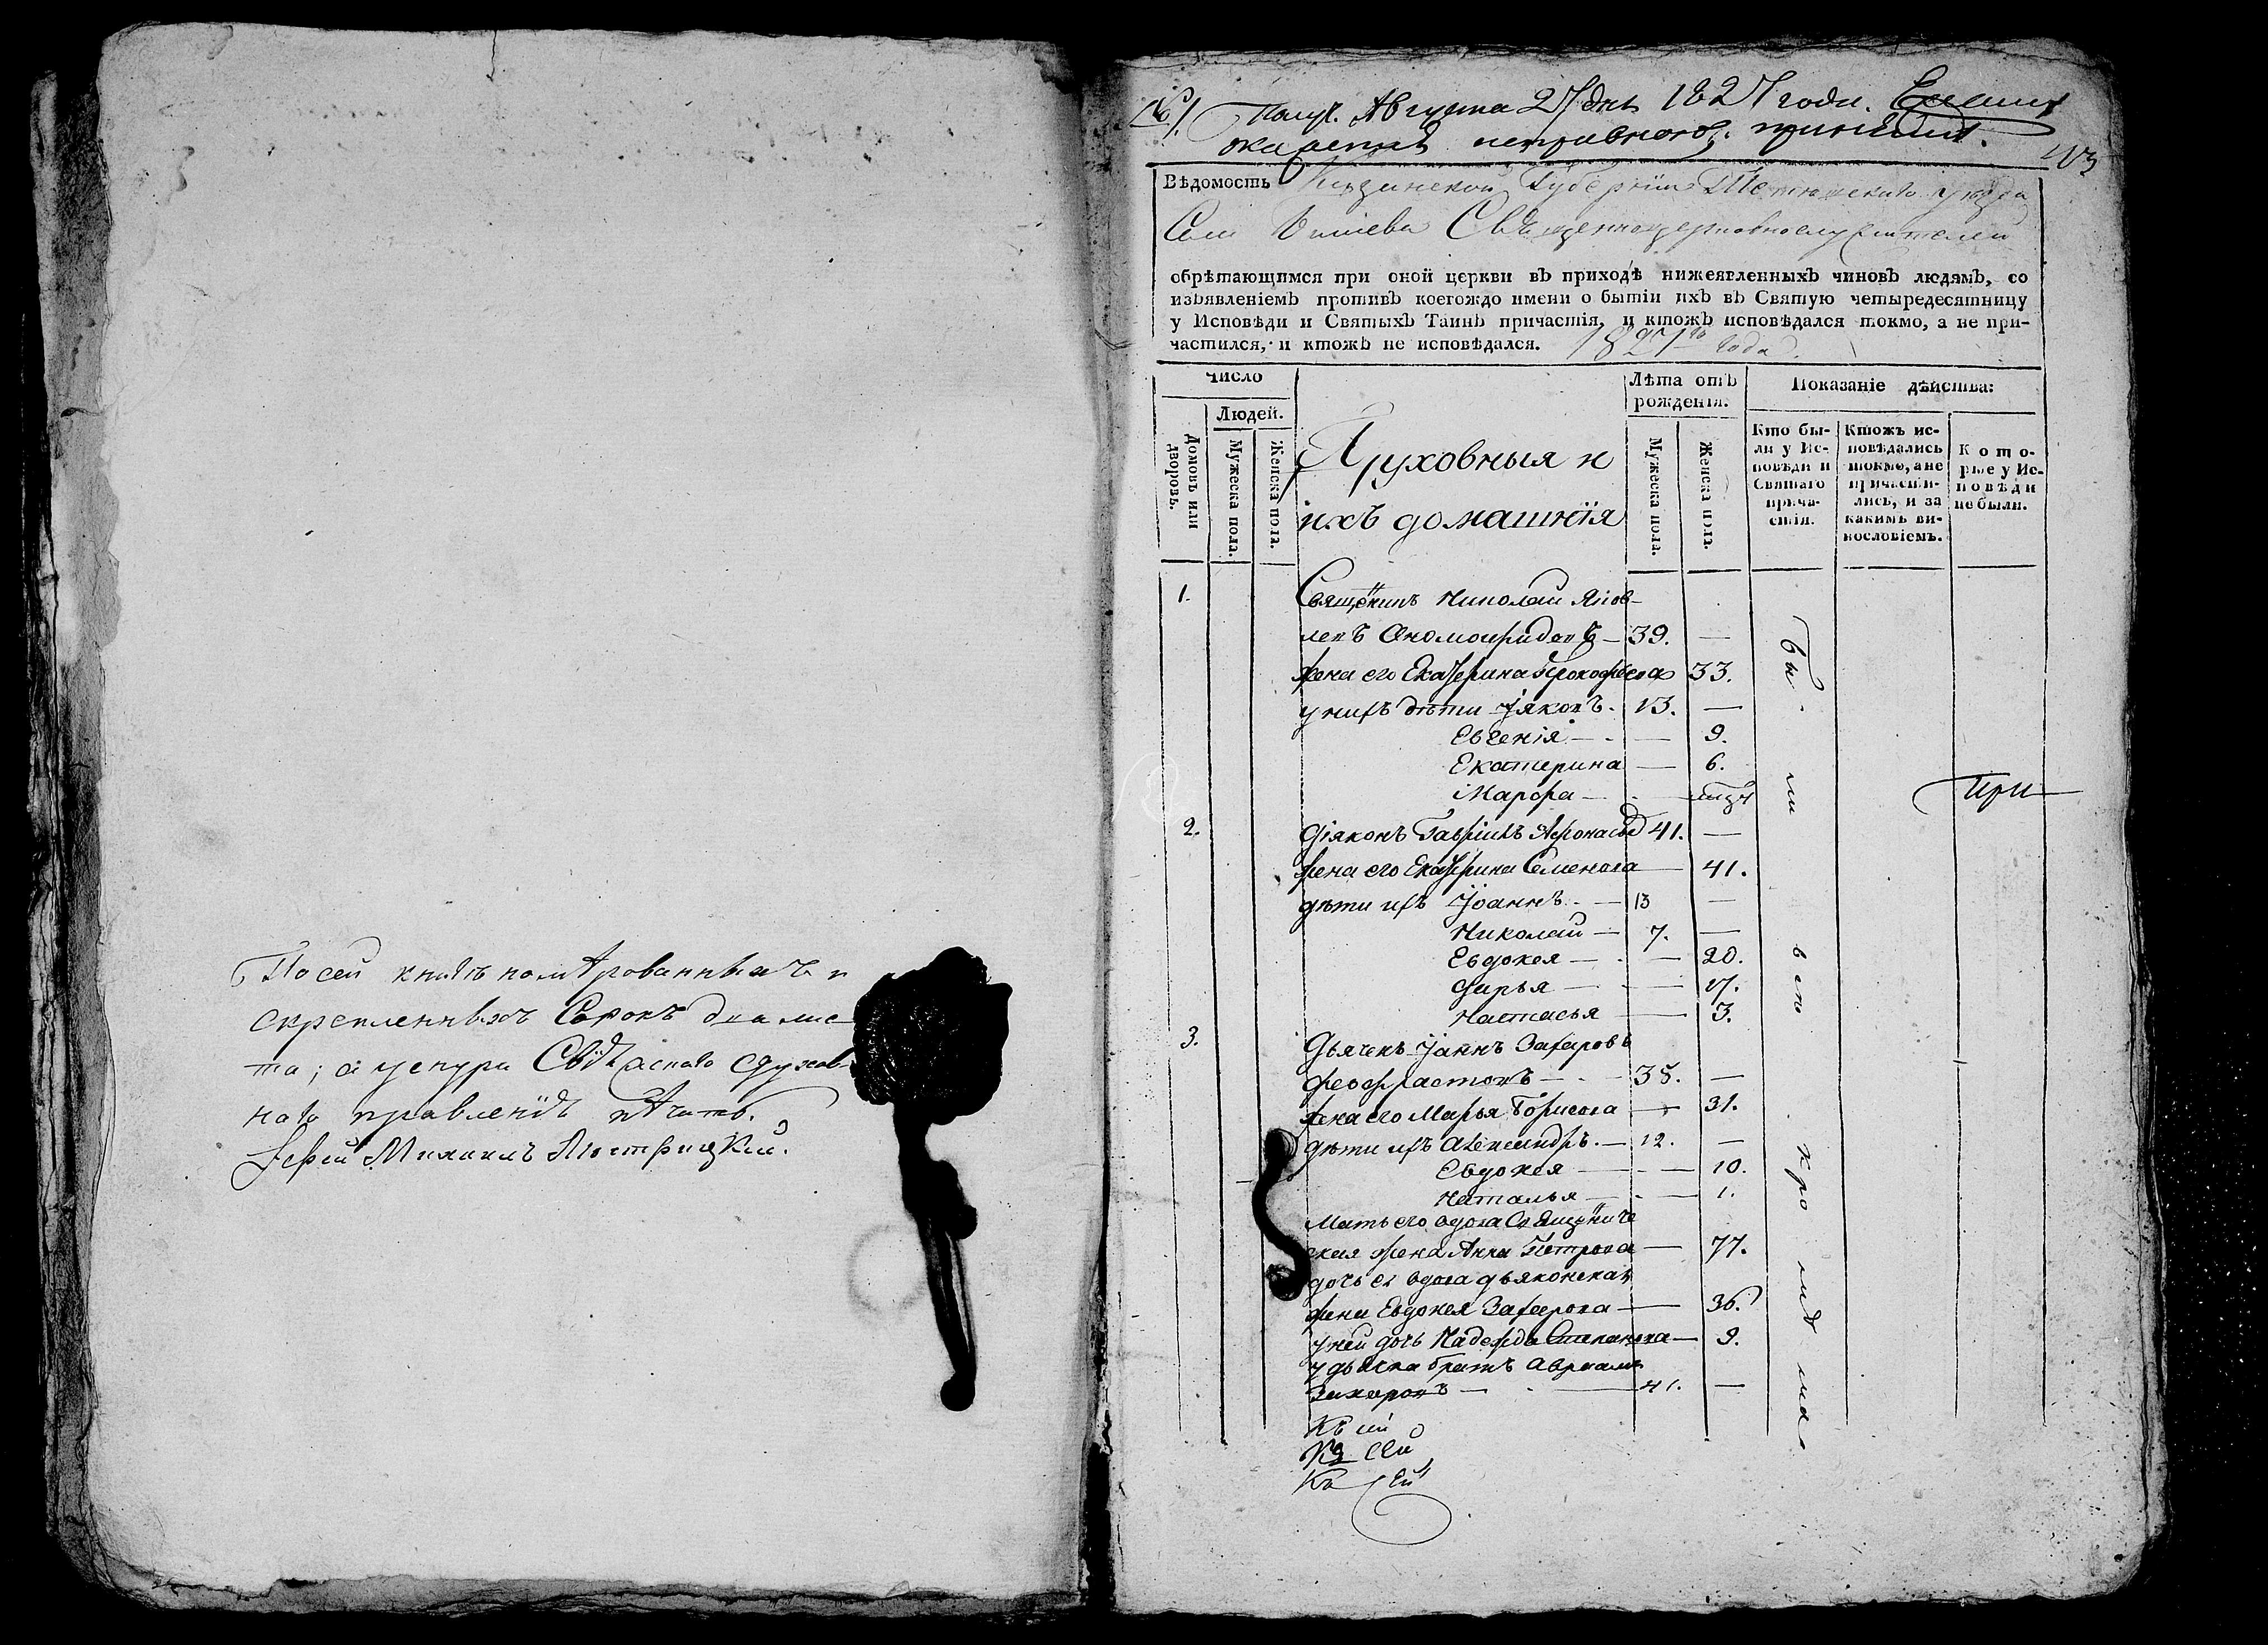 По сей книгѣ номерованныхъ и
скрепленныхъ Сорокъ два лис-
та; а у снура Свіяжскаго духов-
наго правленія печать.
Іерей Михаилъ
Получ. Августа 27 дня 1827 года. Если
окажется исправною, принять.
403
Вѣдомость Казанской Губерніи Тетюшскаго уѣзда
Села Священноцерковнослужителей
обрѣтающимся при оной церкви въ приходѣ нижеявленныхъ чиновъ людямъ, со
изъявленіемъ противъ коегождо имени о бытіи ихъ въ Святую четыредесятницу
у Исповѣди и Святыхъ Таинъ причастія, и ктожъ исповѣдался токмо, а не при-
частился, и ктожъ не исповѣдался. 1827го года.
Число
Людей.
Домовъ или дворовъ.
Мужеска пола.
Женска пола.
Духовныя и
ихъ домашнія
Лѣта отъ
рожденія.
Мужеска пола.
Женска пола.
Показаніе дѣйства:
Кто бы-
ли у Ис-
повѣди и
Святаго
прича-
стія.
Ктожъ ис-
повѣдались
токмо, а не
причасти-
лись, и за
какимъ ви-
нословіемъ.
Кото-
рые у Ис-
повѣди
не были.
1. Священникъ Николай Яков-
левъ 39. —
жена его Екатерина Прокофьева 33.
у нихъ дѣти Іяковъ. 13. —
Евгенія — — 9.
Екатерина — 6.
Марфа —
2. Діяконъ Гавріилъ Афонасьев 41. —
жена его Екатерина Семенова — 41.
дѣти ихъ Іоаннъ. — 13 —
Николай — 7. —
Евдокея — — 20.
Дарья — — 17.
Настасья — 3.
3. Дьячекъ Іоаннъ Захаровъ
Феофрастовъ — 35. —
жена его Марья Борисова — 31.
дѣти ихъ Александръ. — 12. —
Евдокея — — 10.
Наталья — — 1.
Мать его вдова Священниче
ская жена Анна Петрова — 77.
дочь ея вдова дьяконская
жена Евдокея Захарова — 36.
у ней дочь Надежда Степанова — 9.
у дьячка братъ Авраамъ
Захаровъ — 41. —
Къ сей
Къ сей
Къ сей
Бы-
ли
при